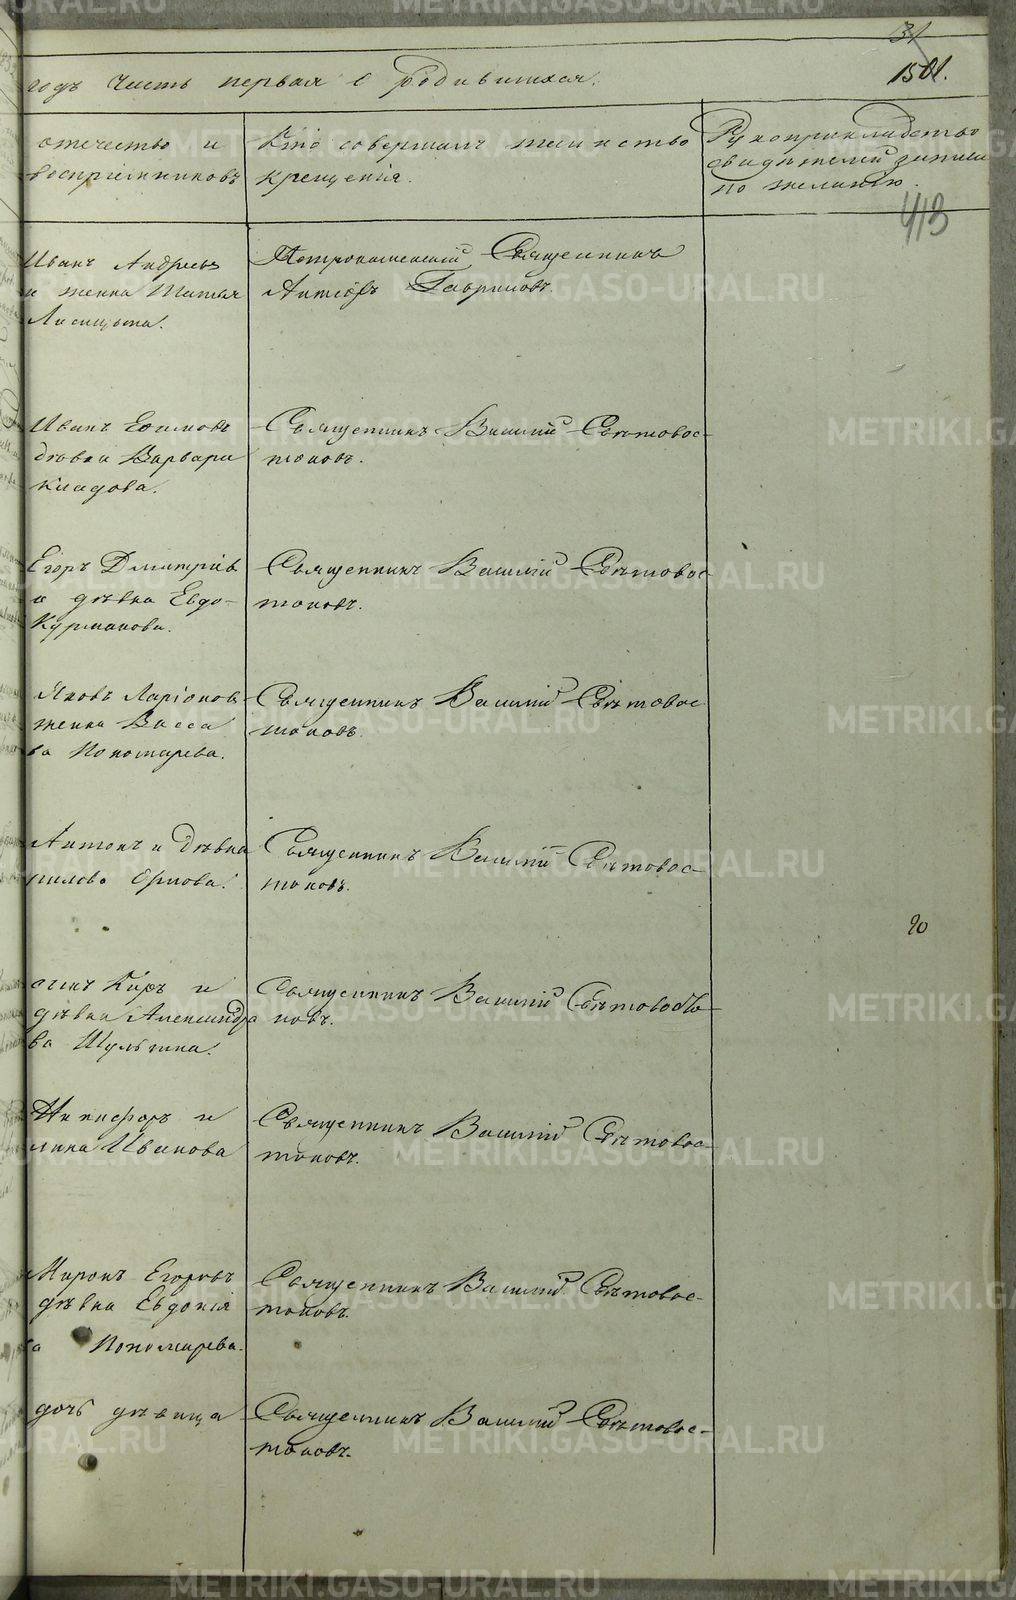 31
1501.
годъ Часть первая о Родившихся.
отечество и
воспріемниковъ
Кто совершалъ таинство
крещенія.
Рукоприкладство
свидѣтелей записи
по желанію.
413
Иванъ Андреевъ
и женка Татья
Лисицына.
Петрокаменскій Священникъ
Гавриловъ.
Иванъ Ефимовъ
дѣвка Варвара
Кладова.
Священникъ Василій Свѣтовос-
токовъ.
Егоръ Дмитріев
и дѣвка Евдо-
Курманова.
Священникъ Василій Свѣтовос
токовъ.
Яковъ Ларіонов
женка Васса
ва Пономарева.
Священникъ Василій Свѣтовос
токовъ.
Антонъ и дѣвка
Орлова.
Священникъ Василій Свѣтовос-
токовъ.
90
Киръ и
дѣвка Александра
ва Шульгина.
Священникъ Василій Свѣтовосто-
ковъ.
Никифоръ и
Иванова
Священникъ Василій Свѣтовос-
токовъ.
Миронъ Егоровъ
дѣвка Евдокія
а Пономарева.
Священникъ Василій Свѣтовос-
токовъ.
дочь дѣвица
Священникъ Василій Свѣтовос-
токовъ.
METRIKI.GASO-URAL.RU